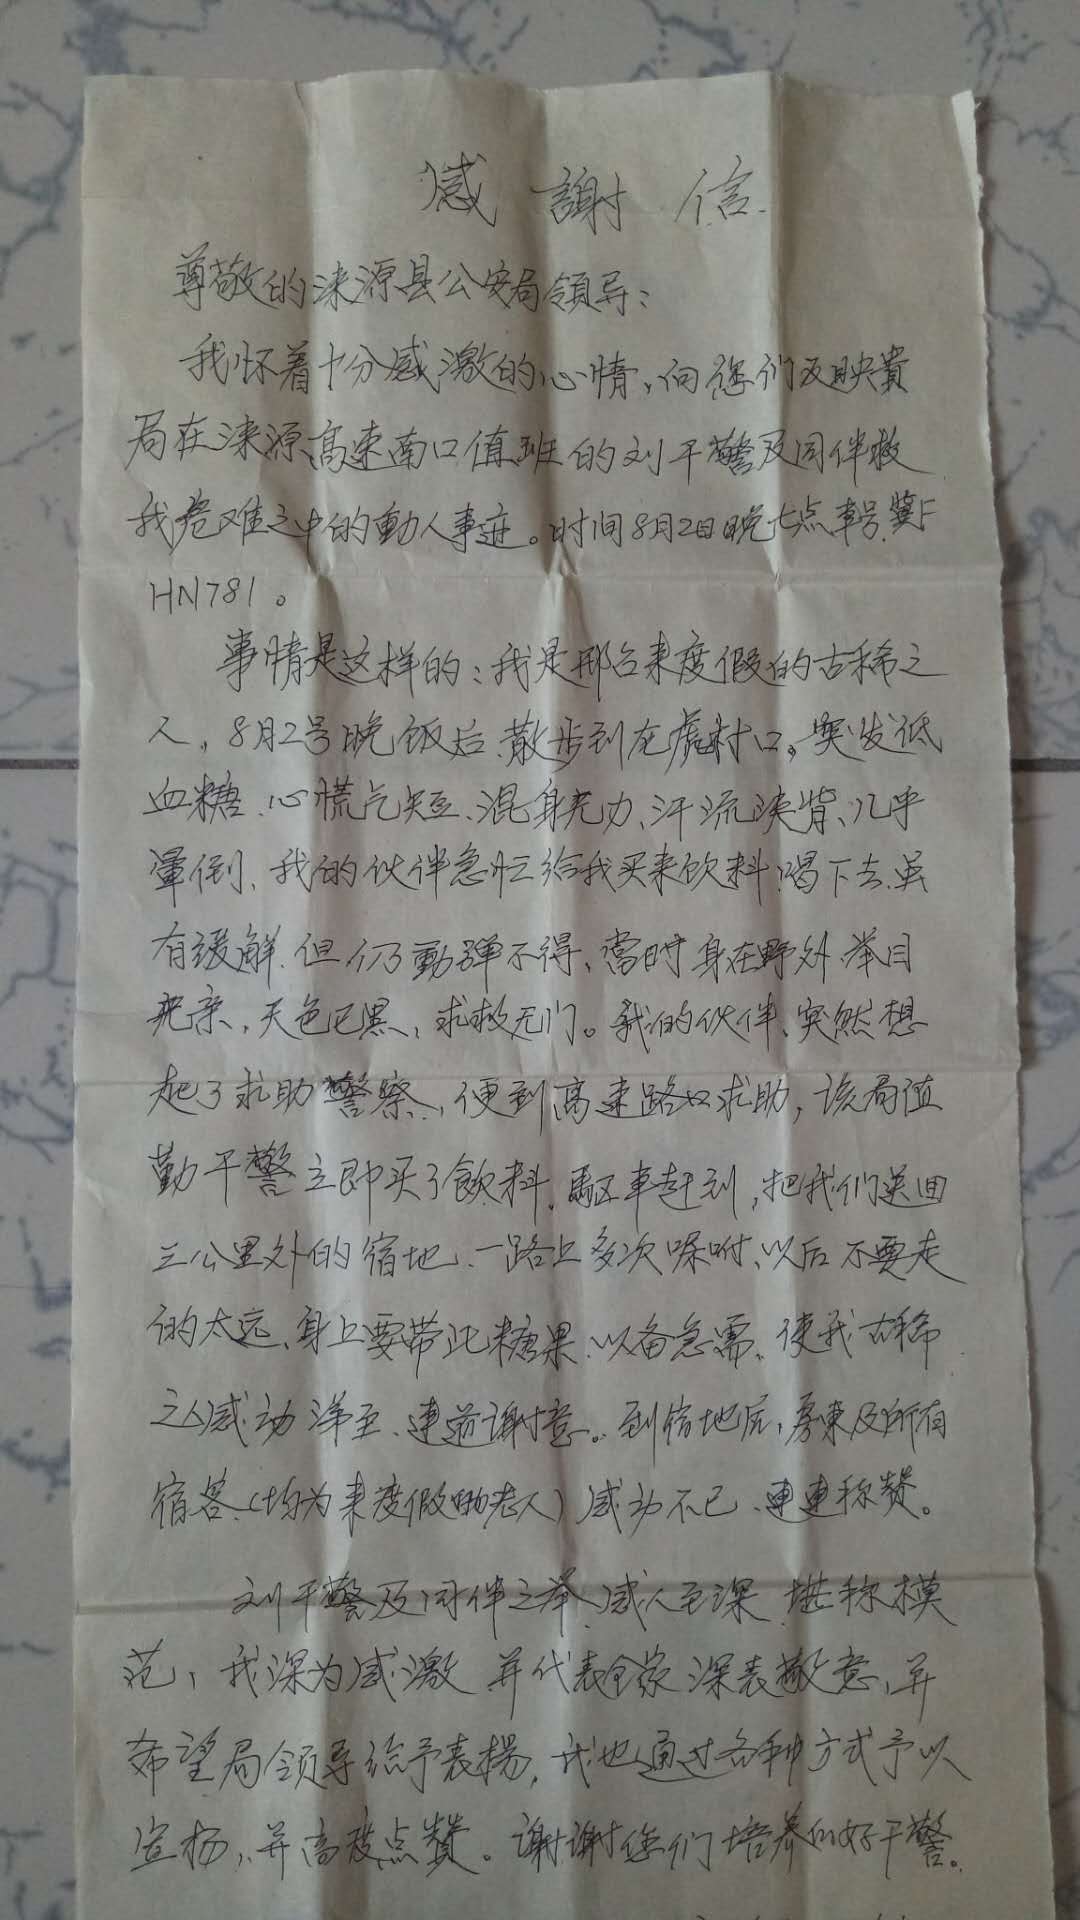 感謝信
尊敬的涞源县公安局领导：
我怀着十分感激的心情，向您们反映貴
局在涞源高速南口值班的刘干警及同伴救
我危难之中的動人事迹。时间8月2日晚七点車号冀F
HN781。
事情是这样的：我是邢台来度假的古稀之
人，8月2号晚饭后散步到左虎村口。突发低
血糖、心慌气短、混身无力、汗流浃背、几乎
暈倒、我的伙伴急忙给我买来饮料喝下去虽
有缓解、但仍動弹不得、當时身在野外举目
无亲，天色已黑，求救无门。我的伙伴、突然想
起了求助警察，便到高速路口求助，该局值
勤干警立即买了飲料、駆車赶到，把我们送回
三公里外的宿地、一路上多次嘱咐、以后不要走
的太远、身上要带些糖果、以备急需、使我古稀
之人感动涕至、連道谢意。到宿地后，房東及所有
宿客（均为来度假的老人）感动不已、連連称赞。
刘干警及同伴之举、感人至深、堪称模
范，我深为感激 并代表全家深表敬意，并
希望局领导给予表揚，我也通过各种方式予以
宣扬，并高度点贊。谢谢您们培养的好干警。